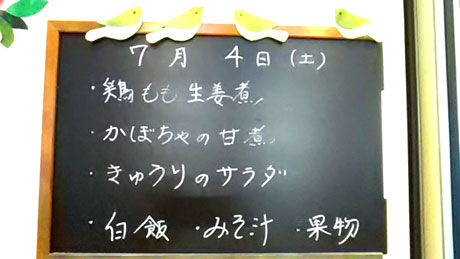 7月 4日(土)
・鶏もも生姜煮
・かぼちゃの甘煮
・きゅうりのサラダ
・白飯 ・みそ汁 ・果物